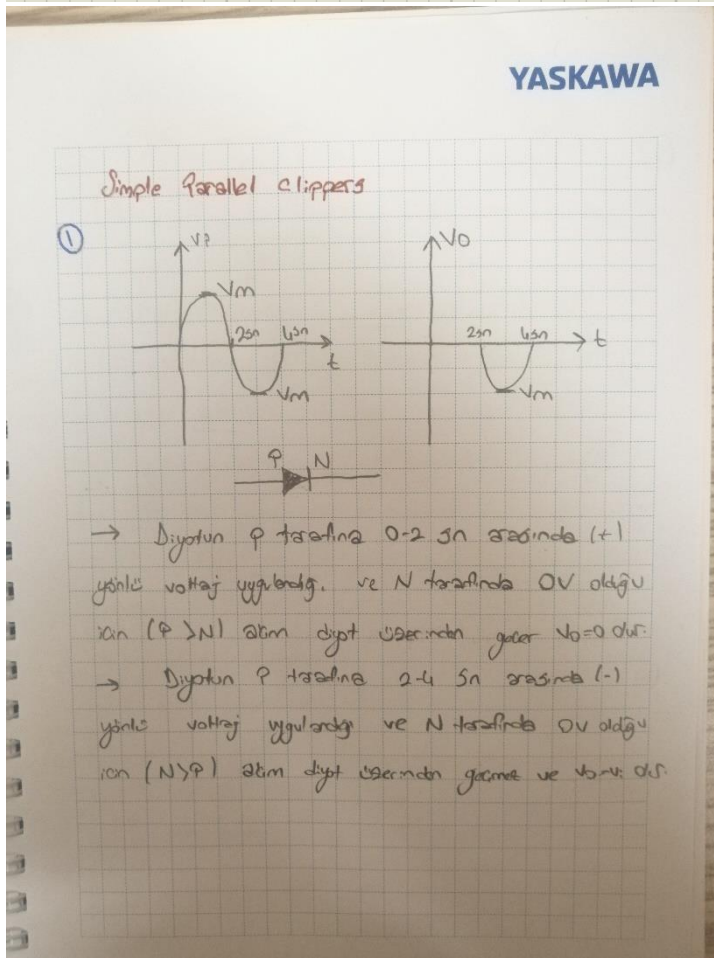 YASKAWA
Simple Parallel Clippers
1
Vi
Vm
2sn 4sn
t
Vm
Vo
2sn 4sn
t
Vm
P N
→ Diyotun P tarafına 0-2 sn arasında (+)
yönlü voltaj uygulandığı. ve N tarafında 0V olduğu
için (P>N) akım diyot üzerinden geçer Vo=0 dur.
→ Diyotun P tarafına 2-4 sn arasında (-)
yönlü voltaj uygulandığı ve N tarafında 0V olduğu
için (N>P) akım diyot üzerinden geçmez ve Vo=Vi dir.